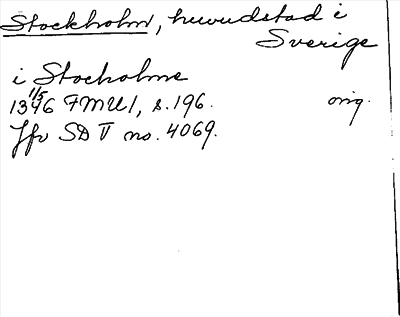 Stockholm, huvudstad i
Sverige
i Stocholme
1396 1/5 FMU I, s. 196. orig.
Jfr SD V no. 4069.